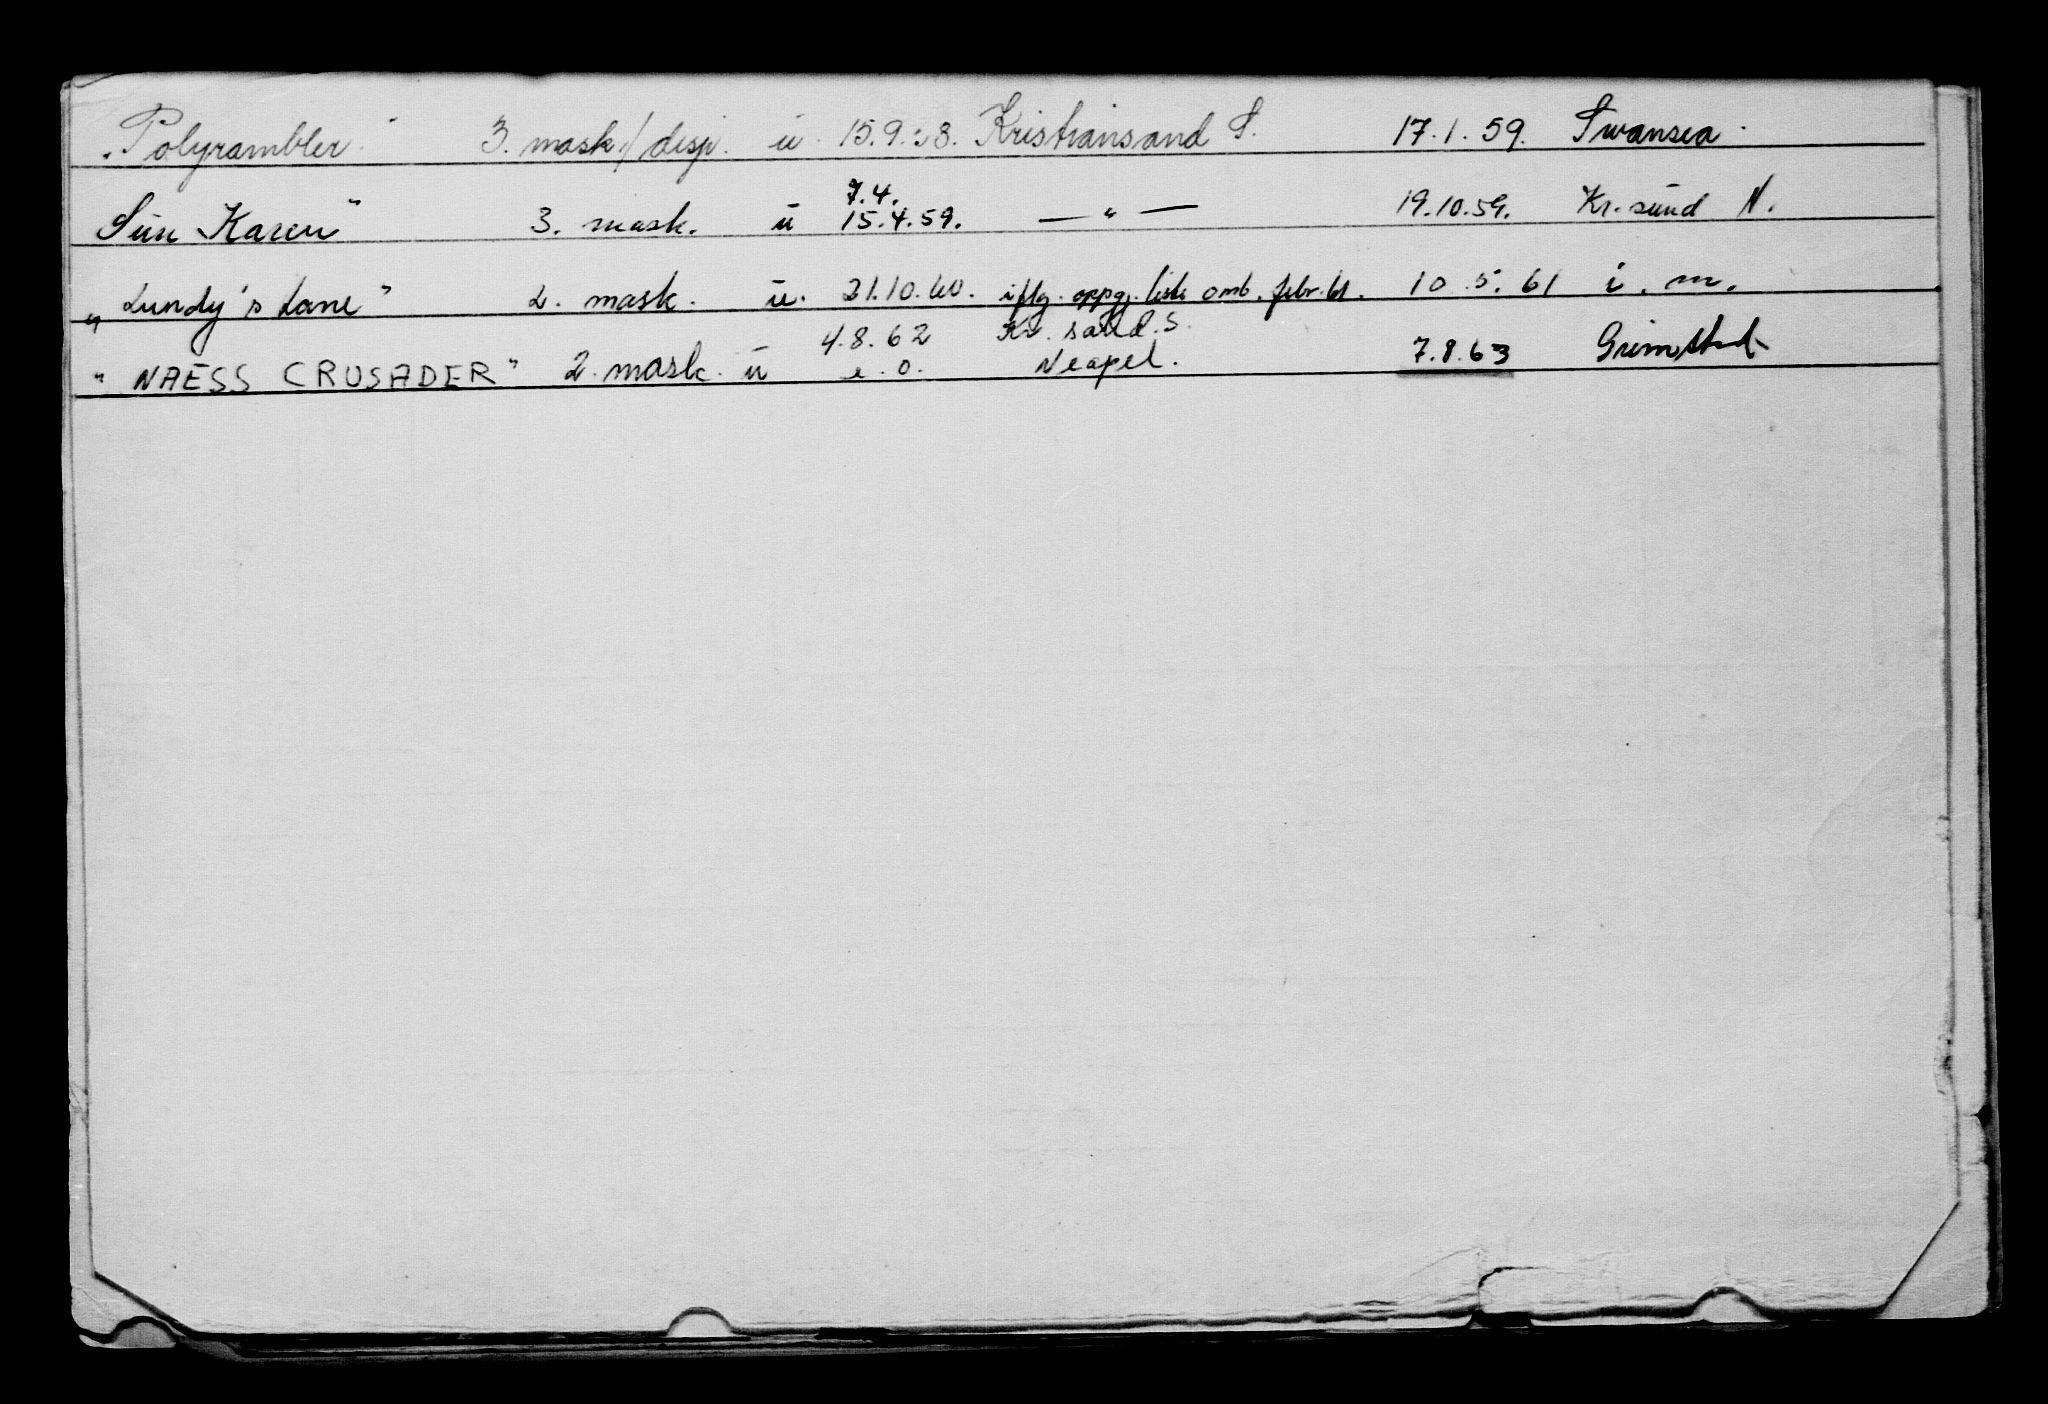 "Polyrambler" 3. mask./disp. u. 15.9.58. Kristiansand S. 17.1.59. Swansea.
7.4.
Sun Karen" 3. mask. u 15.4.59. — " — 19.10.59. Kr.sund N.
"Lundy's Lane" 2. mask. u. 31.10.60. iflg. oppg. liste omb. febr. 61. 10.5.61 i.m.
4.8.62 Kr.sand.S.
"NAESS CRUSADER" 2. mask. u e.o. Neapel. 7.8.63 Grimstad